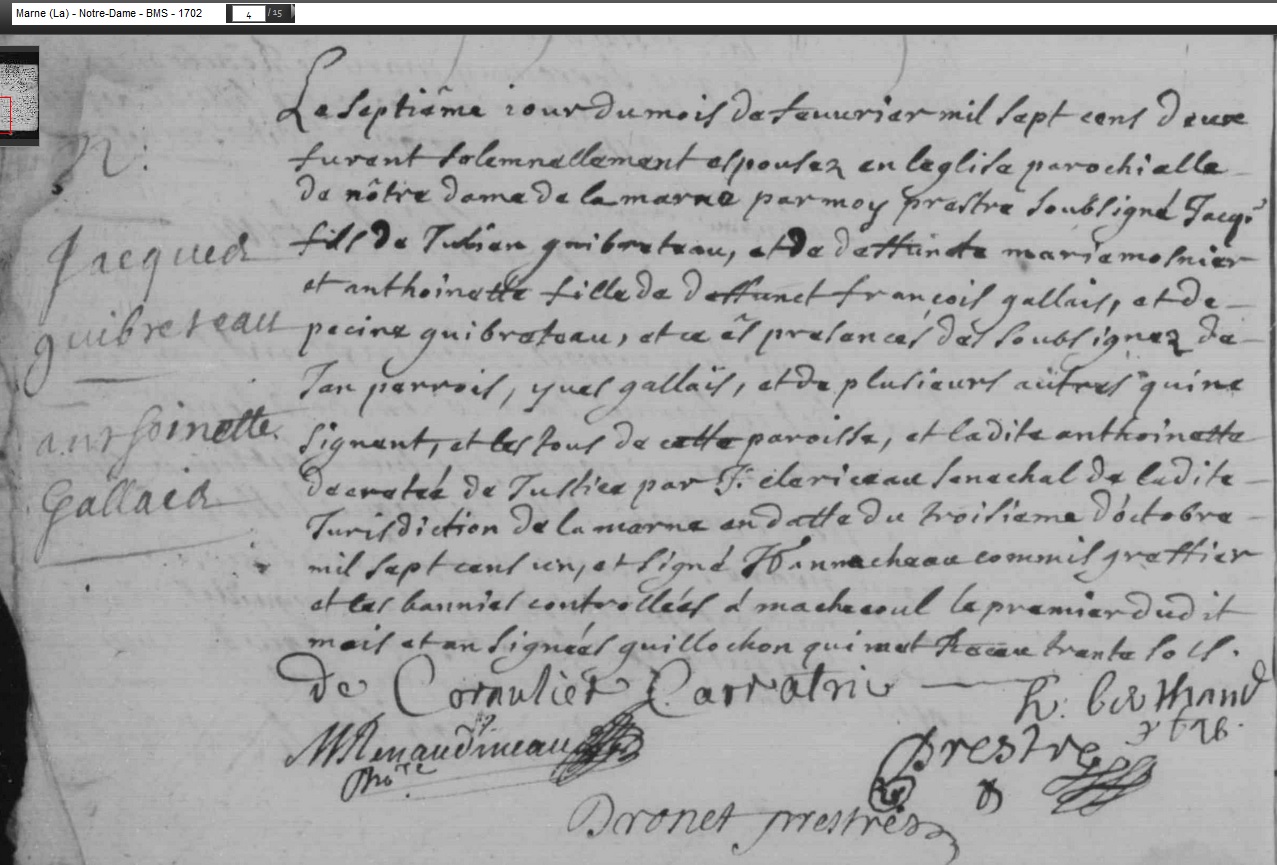 Marne (La) - Notre-Dame - BMS - 1702 4 / 15
Le septiême iour du mois de feuurier mil sept cens deux
N:
furent solemnellement espousez en leglise parochialle
de nôtre dame de la marne par moy prestre soubsigné Jacq:s
Jacques
fils de Julien guibreteau, et de deffuncte marie mosnier
et anthoinette fille de deffunct françois gallais, et de
guibreteau
pecine guibreteau, et ce ês presences des soubsignez de
Jan perrois, yues gallais, et de plusieurs autres qui ne
anthoinette
signent, et les tous de cette paroisse, et ladite anthoinette
decretée de Justice par F: clericeau senechal de ladite
Gallais
Jurisdiction de la marne en datte du troisieme d'octobre
mil sept cens un, et signé commis greffier
et les bannies controllées à machecoul le premier dudit
mois et an signées guillochon qui met trente sols.
de Cornulier
h: berthaud
ptre
M Renaudineau
prestre
Dronet prestre